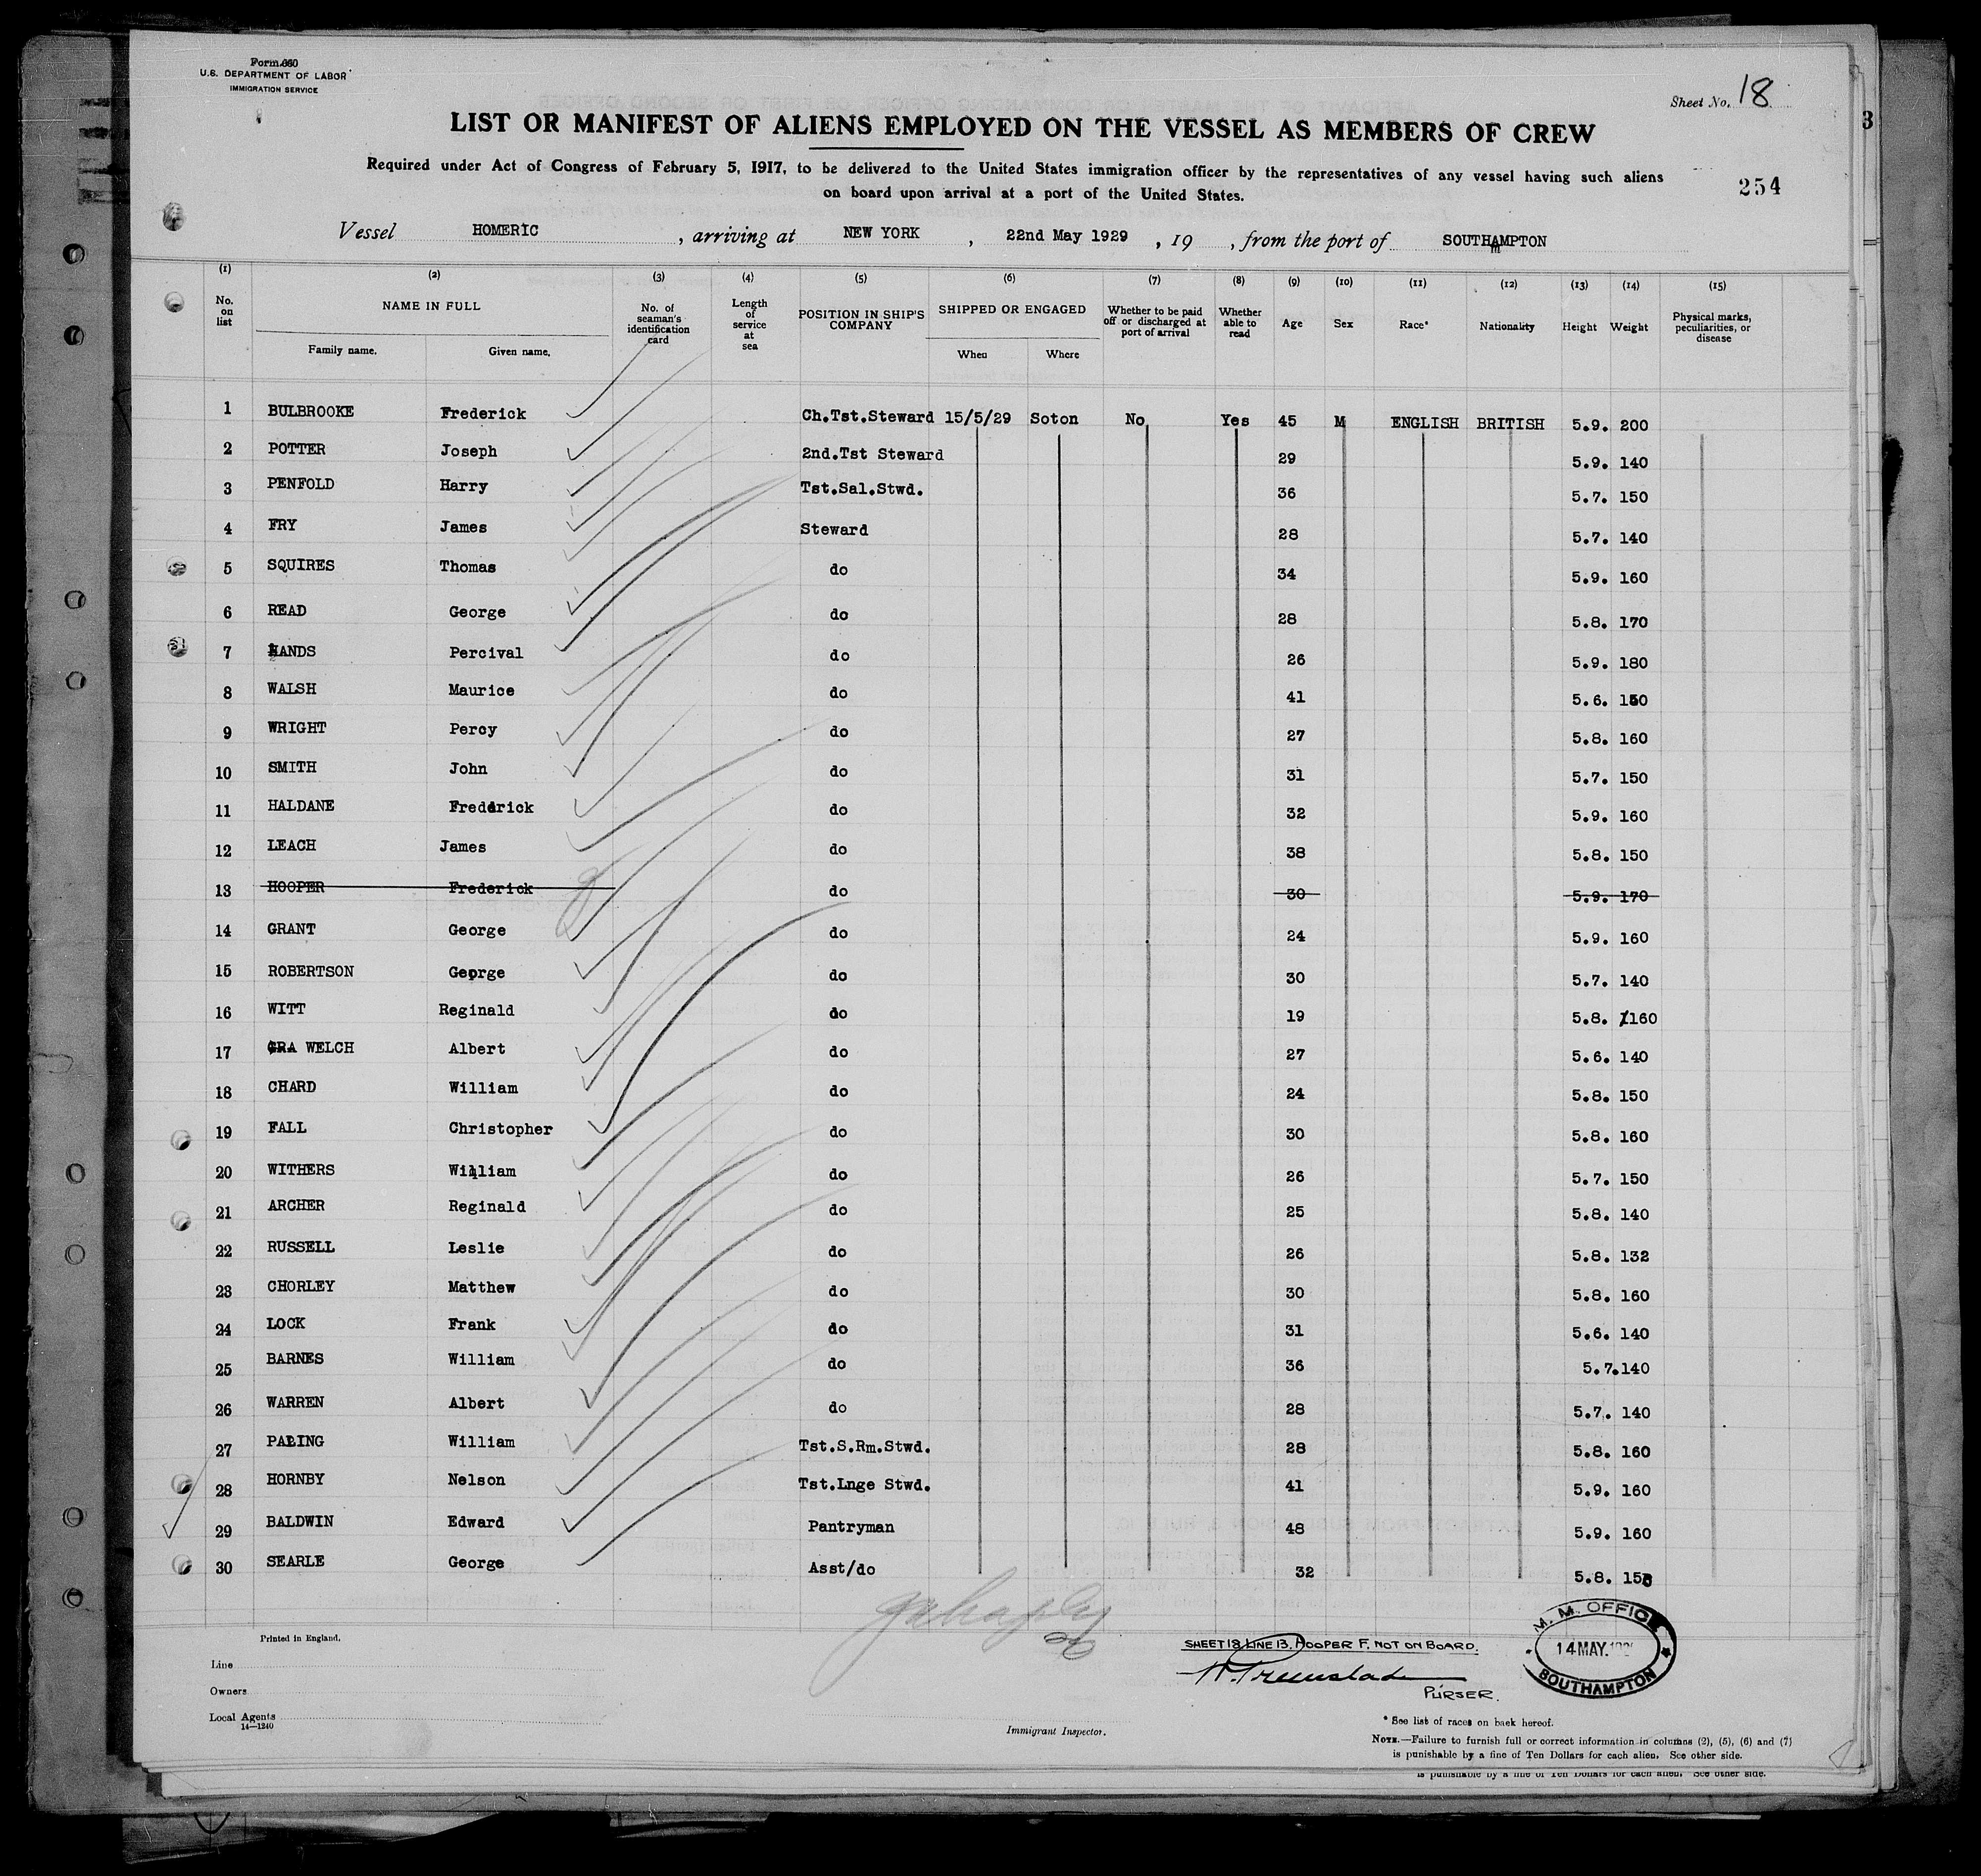 Form 660
U.S. DEPARTMENT OF LABOR
IMMIGRATION SERVICE
Sheet No. 18
LIST OR MANIFEST OF ALIENS EMPLOYED ON THE VESSEL AS MEMBERS OF CREW
Required under Act of Congress of February 5, 1917, to be delivered to the United States immigration officer by the representatives of any vessel having such aliens
on board upon arrival at a port of the United States.
254
3
Vessel HOMERIC, arriving at NEW YORK, 22nd May 1929, 19 , from the port of SOUTHAMPTON
(1) (2) (3) (4) (5) (6) (7) (8) (9) (10) (11) (12) (13) (14) (15)
No. on list NAME IN FULL Family name. Given name. No. of seaman's identification card Length of service at sea POSITION IN SHIP'S COMPANY SHIPPED OR ENGAGED When Where Whether to be paid off or discharged at port of arrival Whether able to read Age Sex Race* Nationality Height Weight Physical marks, peculiarities, or disease
1 BULBROOKE Frederick Ch.Tst.Steward 15/5/29 Soton No Yes 45 M ENGLISH BRITISH 5.9. 200
2 POTTER Joseph 2nd.Tst Steward 29 5.9. 140
3 PENFOLD Harry Tst.Sal.Stwd. 36 5.7. 150
4 FRY James Steward 28 5.7. 140
5 SQUIRES Thomas do 34 5.9. 160
6 READ George do 28 5.8. 170
7 HANDS Percival do 26 5.9. 180
8 WALSH Maurice do 41 5.6.
9 WRIGHT Percy do 27 5.8. 160
10 SMITH John do 31 5.7. 150
11 HALDANE Frederick do 32 5.9. 160
12 LEACH James do 38 5.8. 150
13 HOOPER Frederick do 30 5.9. 170
14 GRANT George do 24 5.9. 160
15 ROBERTSON George do 30 5.7. 140
16 WITT Reginald do 19 5.8. 160
17 GRA WELCH Albert do 27 5.6. 140
18 CHARD William do 24 5.8. 150
19 FALL Christopher do 30 5.8. 160
20 WITHERS William do 26 5.7. 150
21 ARCHER Reginald do 25 5.8. 140
22 RUSSELL Leslie do 26 5.8. 132
23 CHORLEY Matthew do 30 5.8. 160
24 LOCK Frank do 31 5.6. 140
25 BARNES William do 36 5.7.140
26 WARREN Albert do 28 5.7. 140
27 PALING William Tst.S.Rm.Stwd. 28 5.8. 160
28 HORNBY Nelson Tst.Lnge Stwd. 41 5.9. 160
29 BALDWIN Edward Pantryman 48 5.9. 160
30 SEARLE George Asst/do 32 5.8.
Printed in England.
SHEET 18 LINE 13. HOOPER F. NOT ON BOARD.
PURSER.
M. M. OFFICE
14 MAY
SOUTHAMPTON
Line
Owners
Local Agents
14—1240
Immigrant Inspector.
* See list of races on back hereof.
NOTE.—Failure to furnish full or correct information in columns (2), (5), (6) and (7)
is punishable by a fine of Ten Dollars for each alien. See other side.
is punishable by a fine of Ten Dollars for each alien. See other side.